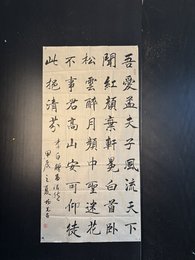 吾愛孟夫子風流天下
聞紅顏棄軒冕白首臥
松雲醉月頻中聖迷花
不事君高山安可仰徒
此挹清芬
李白贈孟浩然
之夏